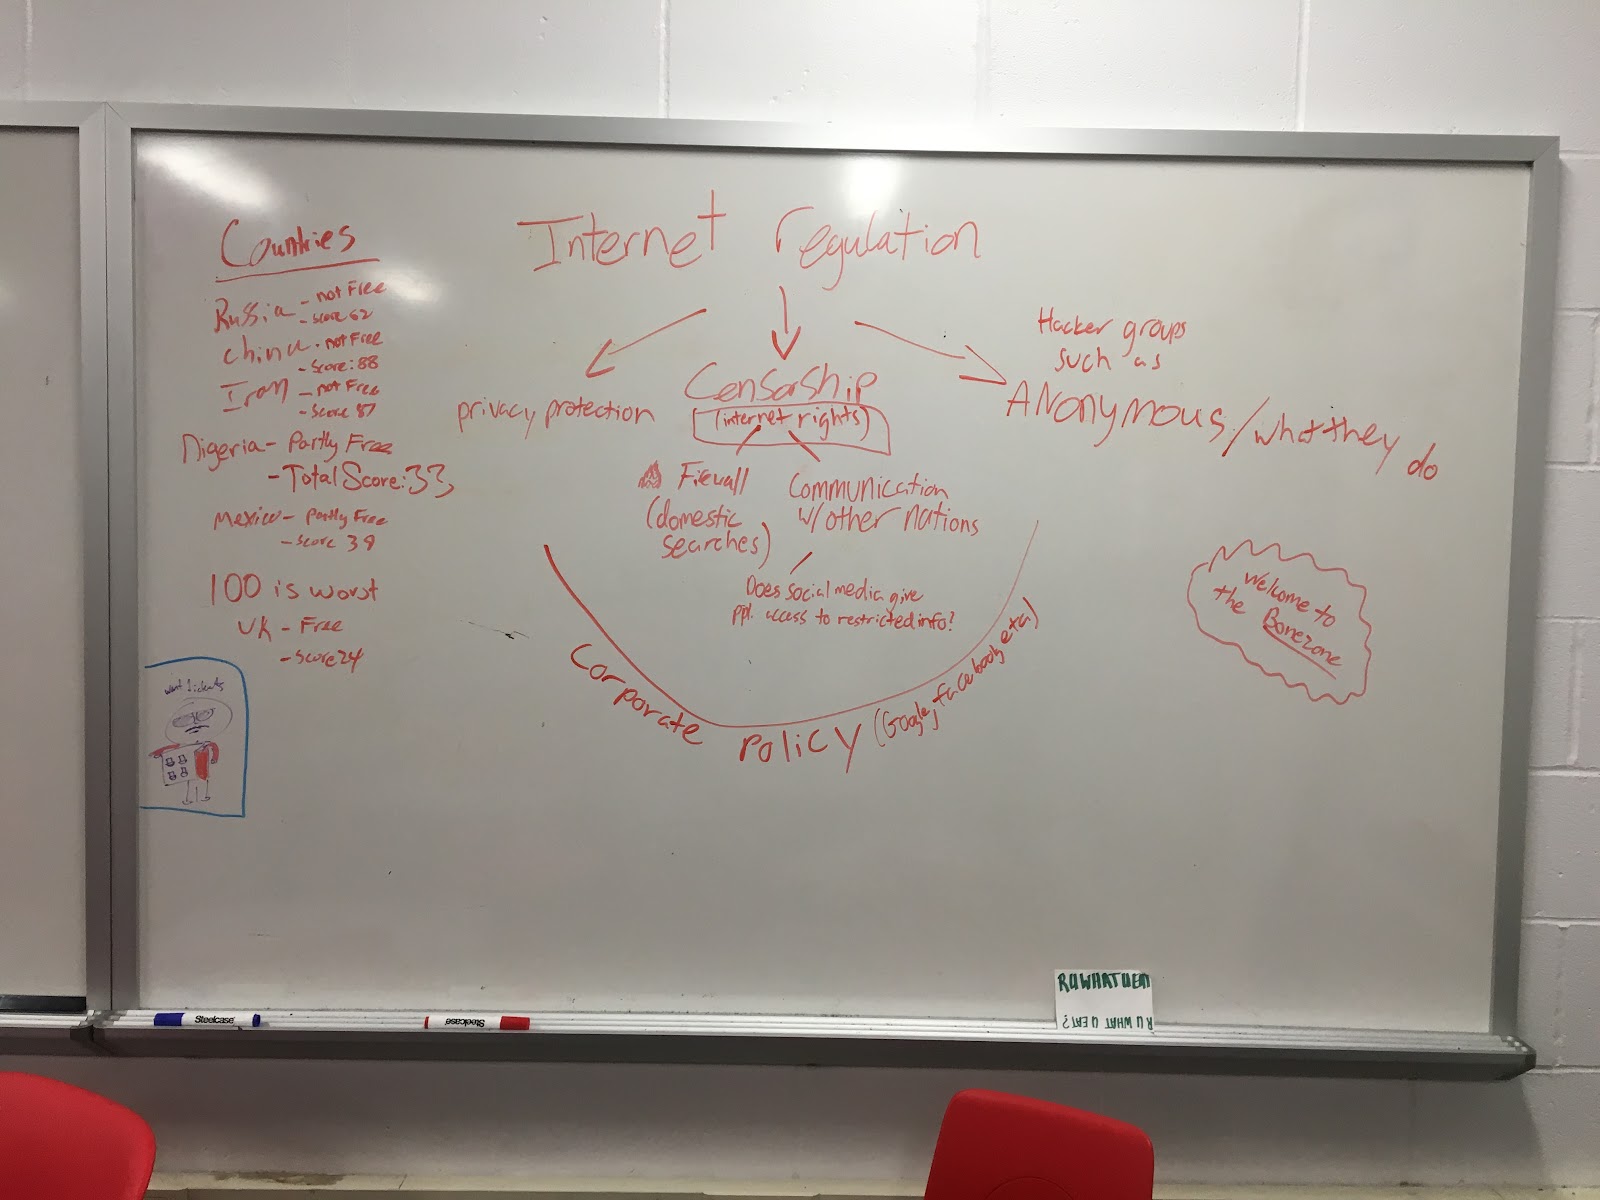 Countries
Russia - not Free
- score 62
China - not Free
- score: 88
Iran - not Free
- score 87
Nigeria - Partly Free
- Total Score: 33
Mexico - Partly Free
- score 39
100 is worst
UK - Free
- score 24
Internet regulation
privacy protection
Censorship
(internet rights)
Firewall
(domestic
searches)
Communication
w/other nations
Does social media give
ppl. access to restricted info?
Hacker groups
such as
ANonymous/what they do
Corporate Policy (Google, facebook, etc)
Welcome to
the Bonezone
Steelcase
Steelcase
R U WHAT U EAT
R U WHAT U EAT?